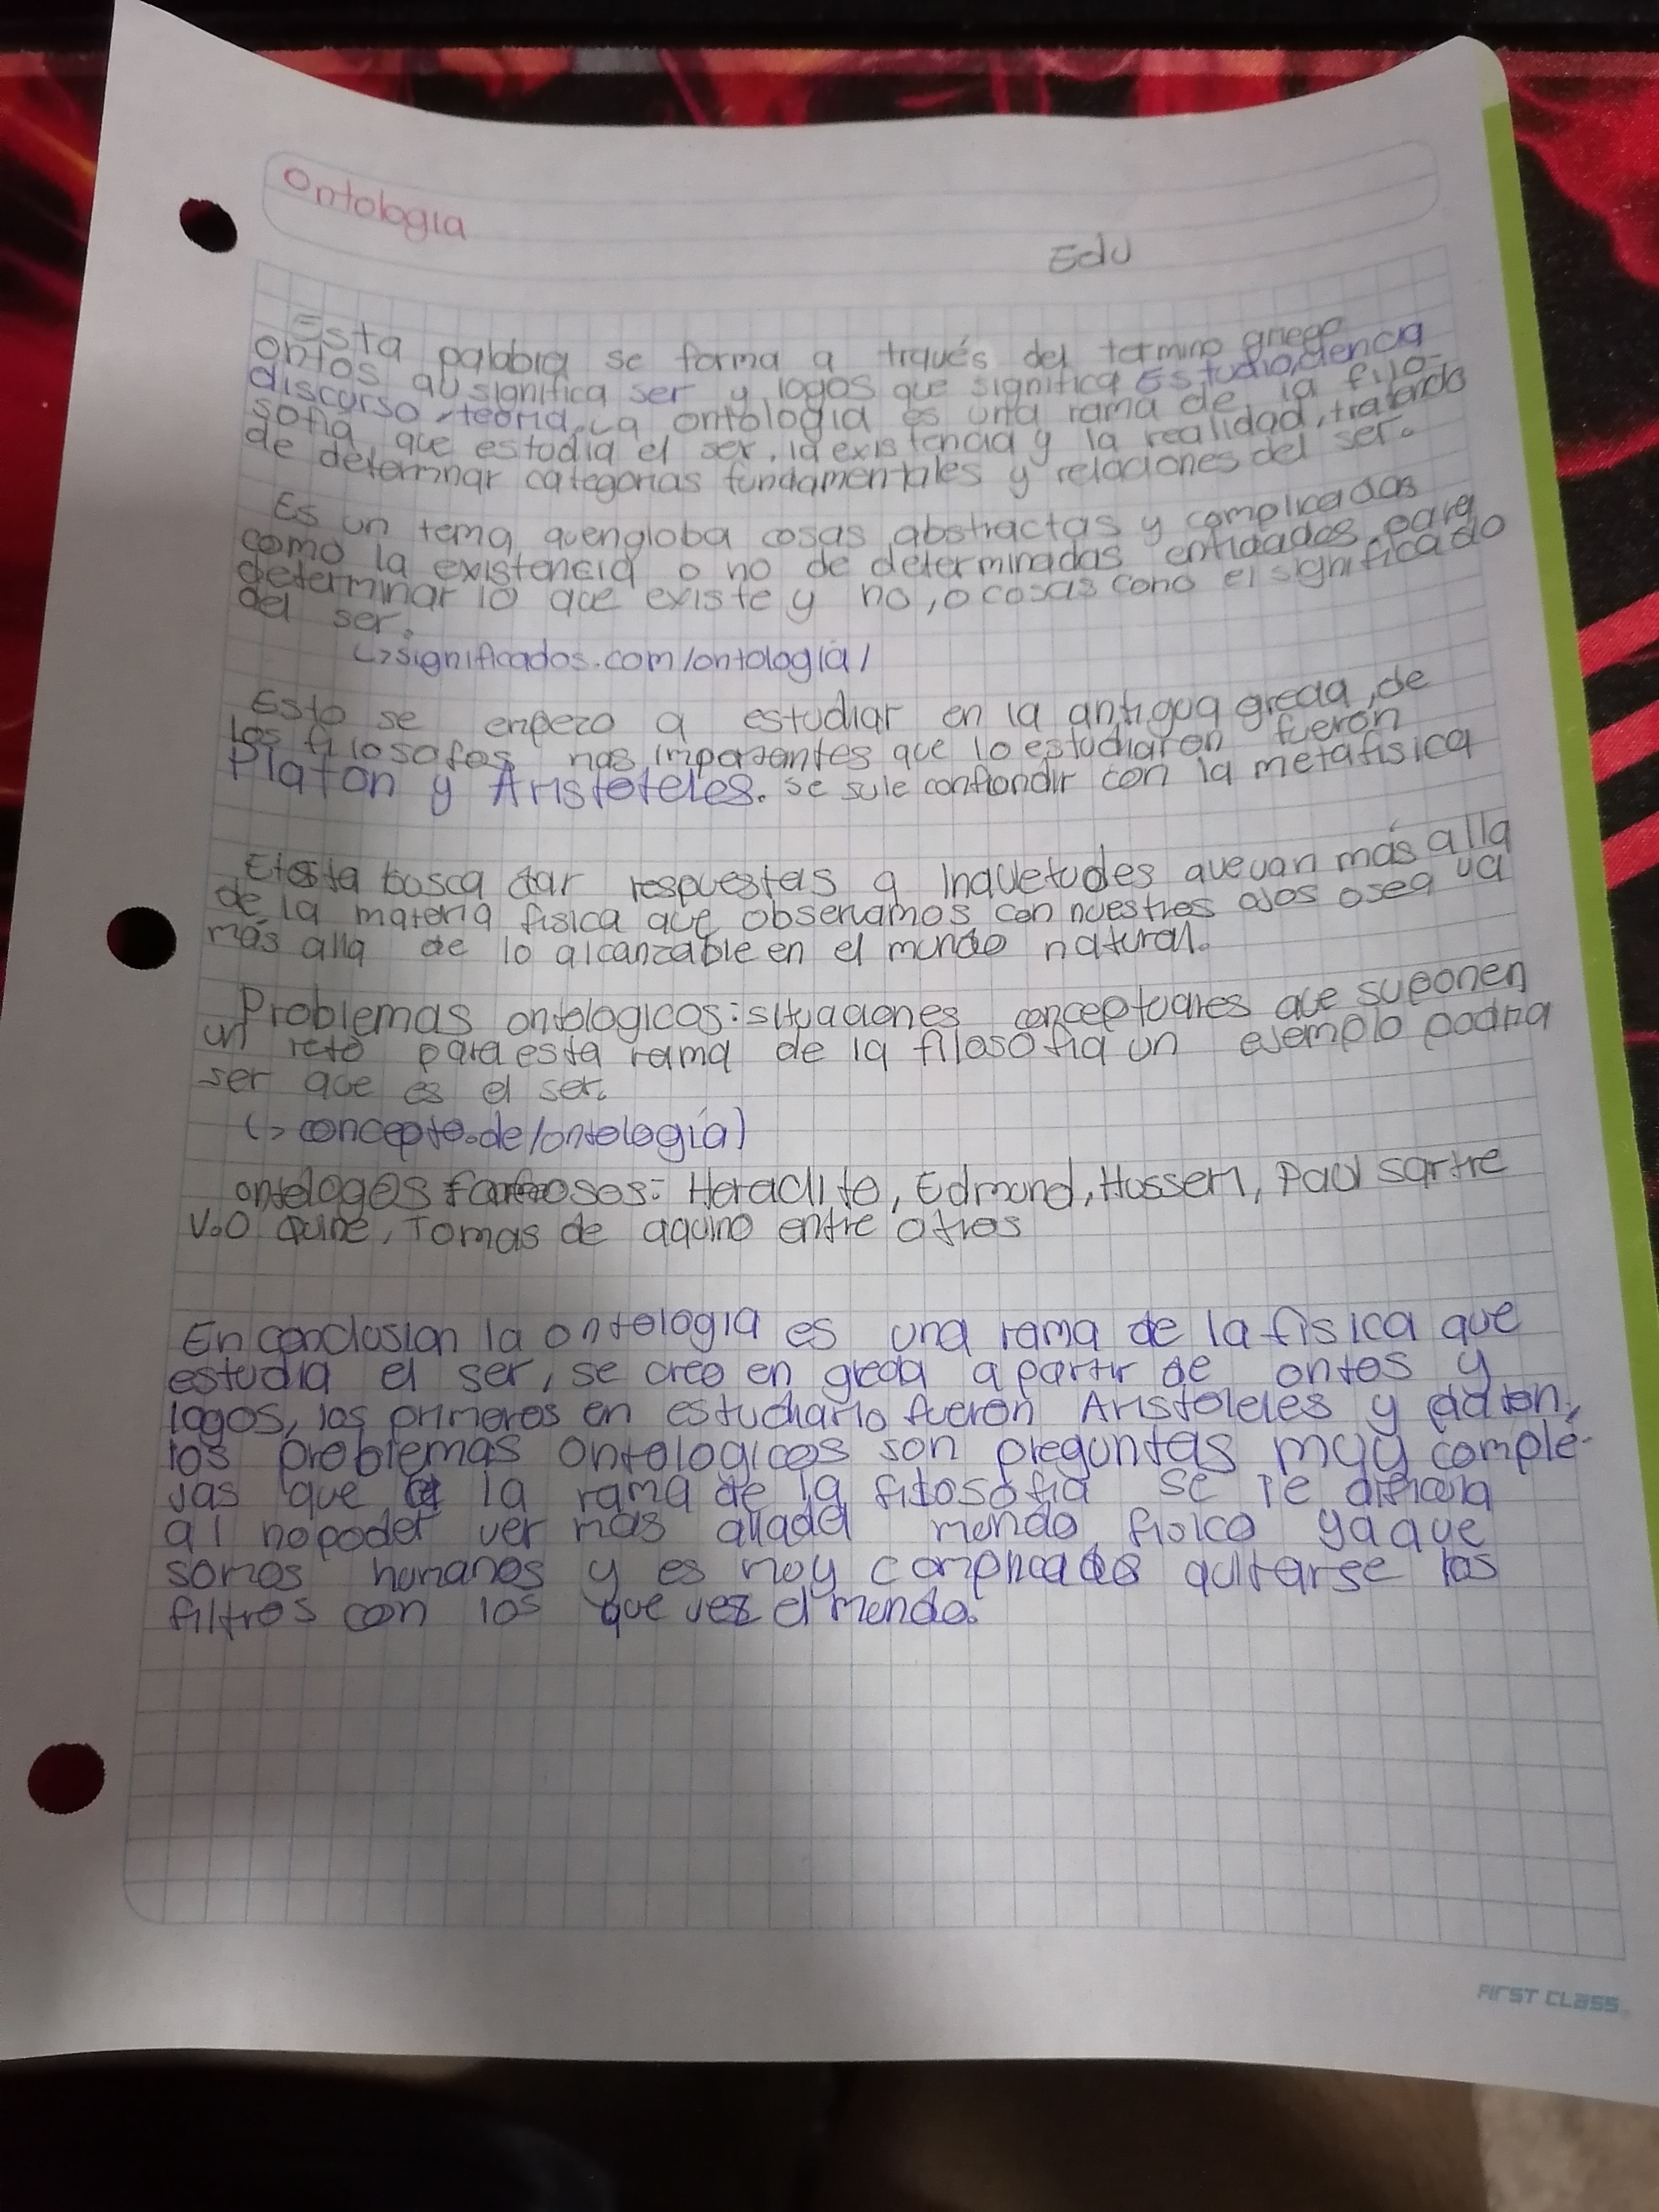 Ontologia
Edu
Esta palabra se forma a través del termino griego
ontos qu significa ser y logos que significa Estudio,ciencia
discurso, teoria, La ontologia es una rama de la filo-
sofia que estudia el ser, la existencia y la realidad, tratando
de determinar categorias fundamentales y relaciones del ser.
Es un tema quengloba cosas abstractas y complicadas
como la existencia o no de determinadas entidades para
determinar lo que existe y no, o cosas como el significado
del ser.
↳significados.com/ontologia/
Esto se empezo a estudiar en la antigua grecia, de
los filosofos mas importantes que lo estudiaron fueron
Platon y Aristoteles. se sule confiondir con la metafisica
Esta busca dar respuestas a inquetudes que van más alla
de la materia fisica que observamos con nuestros ojos osea va
más alla de lo alcanzable en el mundo natural.
Problemas ontologicos: situaciones conceptuales que suponen
un reto para esta rama de la filosofia un ejemplo podria
ser que es el ser.
(> concepto.de/ontología)
ontologos famosos: Heraclito, Edmund, Husserl, Paul sartre
V.O Quine, Tomas de aquino entre otros
En conclusion la ontologia es una rama de la fisica que
estudia el ser, se creo en grecia apartir de ontos y
logos, los primeros en estudiarlo fueron Aristoteles y platon,
los problemas ontologicos son preguntas muy comple-
jas que a la rama de la filosofia se le dificulta
al no poder ver mas allada mundo fisico ya que
somos humanos y es muy complicado quitarse los
filtros con los que vez el mundo.
FIRST CLASS